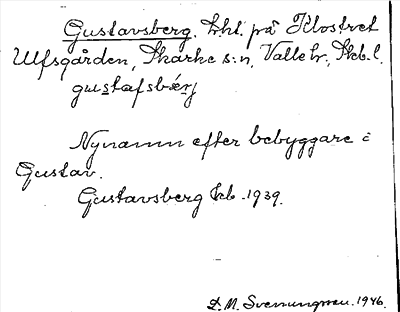 Gustavsberg. Lht. på Klostret
Ulfsgården, Skarke s:n, Valle hr, Skb. l.
gustafsbærj
Nynamn efter bebyggare i
Gustav.
Gustavsberg Kb. 1939.
D. M. Svenungsson. 1946.